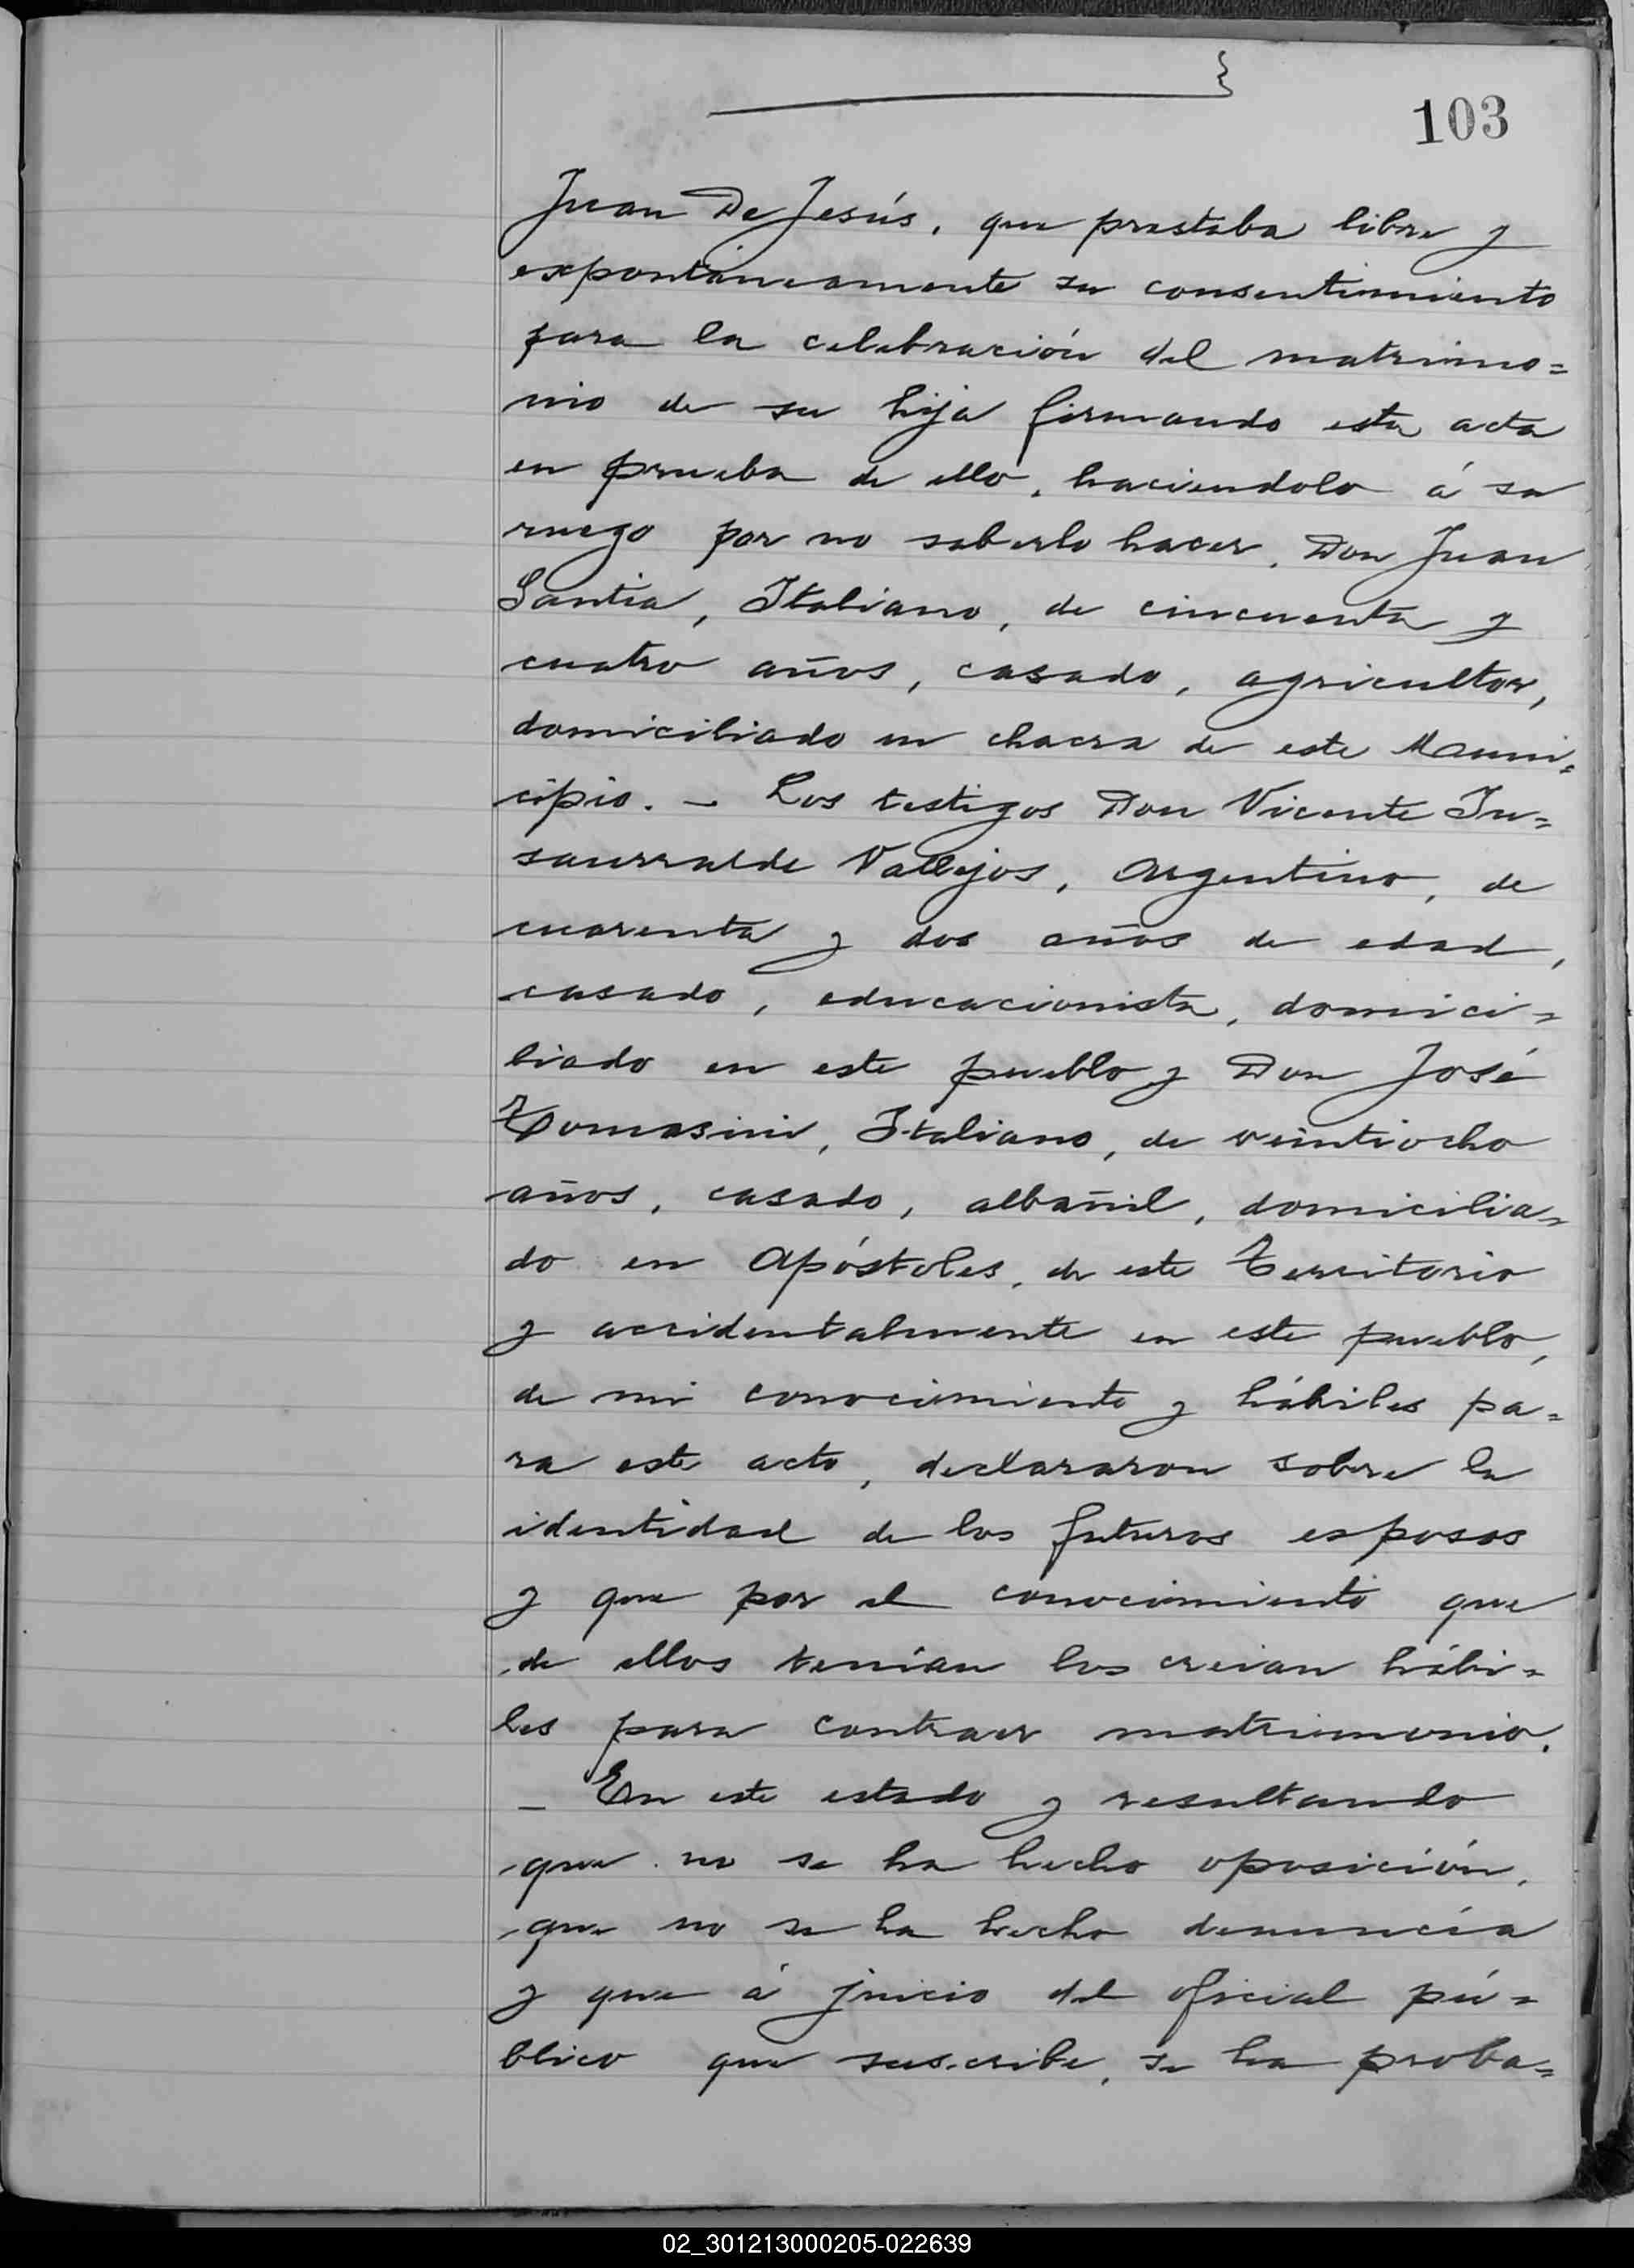 103
Juan De Jesús, que prestaba libre y
expontáneamente su consentimiento
para la celebración del matrimo=
nio de su hija firmando esta acta
en prueba de ello, haciendolo á su
ruego por no saberlo hacer, Don Juan
Santia, Italiano, de cincuenta y
cuatro años, casado, agricultor,
domiciliado en chacra de este Muni=
cipio. – Los testigos Don Vicente In=
saurralde Vallejos, Argentino, de
cuarenta y dos años de edad,
casado, educacionista, domici=
liado en este pueblo y Don José
Tomasini, Italiano, de veintiocho
años, casado, albañil, domicilia=
do en Apóstoles, de este Territorio
y accidentalmente en este pueblo,
de mi conocimiento y hábiles pa=
ra este acto, declararon sobre la
identidad de los futuros esposos
y que por el conocimiento que
de ellos tenían los creian hábi=
les para contraer matrimonio.
– En este estado y resultando
que no se ha hecho oposición,
que no se ha hecho denuncia
y que á juicio del oficial pú=
blico que suscribe, se ha proba=
02_301213000205-022639